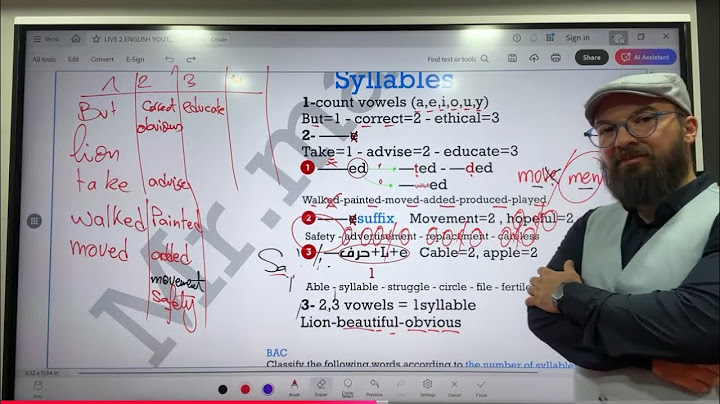 Menu
LIVE 2 ENGLISH YOUT...
Create
Sign in
All tools Edit Convert E-Sign
Find text or tools
Share
AI Assistant
1 2 3
But correct educate
obvious
lion
take advise
walked Painted
moved added
movement
Safety
Syllables
1-count vowels (a,e,i,o,u,y)
But=1 - correct=2 - ethical=3
2- e
Take=1 - advise=2 - educate=3
1 ed ted - ded
ed
Walked-painted-moved-added-produced-played
2 e suffix, Movement=2 , hopeful=2
Safety - advertisement - replacement - careless
3 حرف+L+e Cable=2, apple=2
1
Able - syllable - struggle - circle - file - fertile
3- 2,3 vowels = 1syllable
Lion-beautiful-obvious
BAC
Classify the following words according to the number of syllable
move men
Mr.m
Eraser
Previous
Next
Settings
Save
Finish